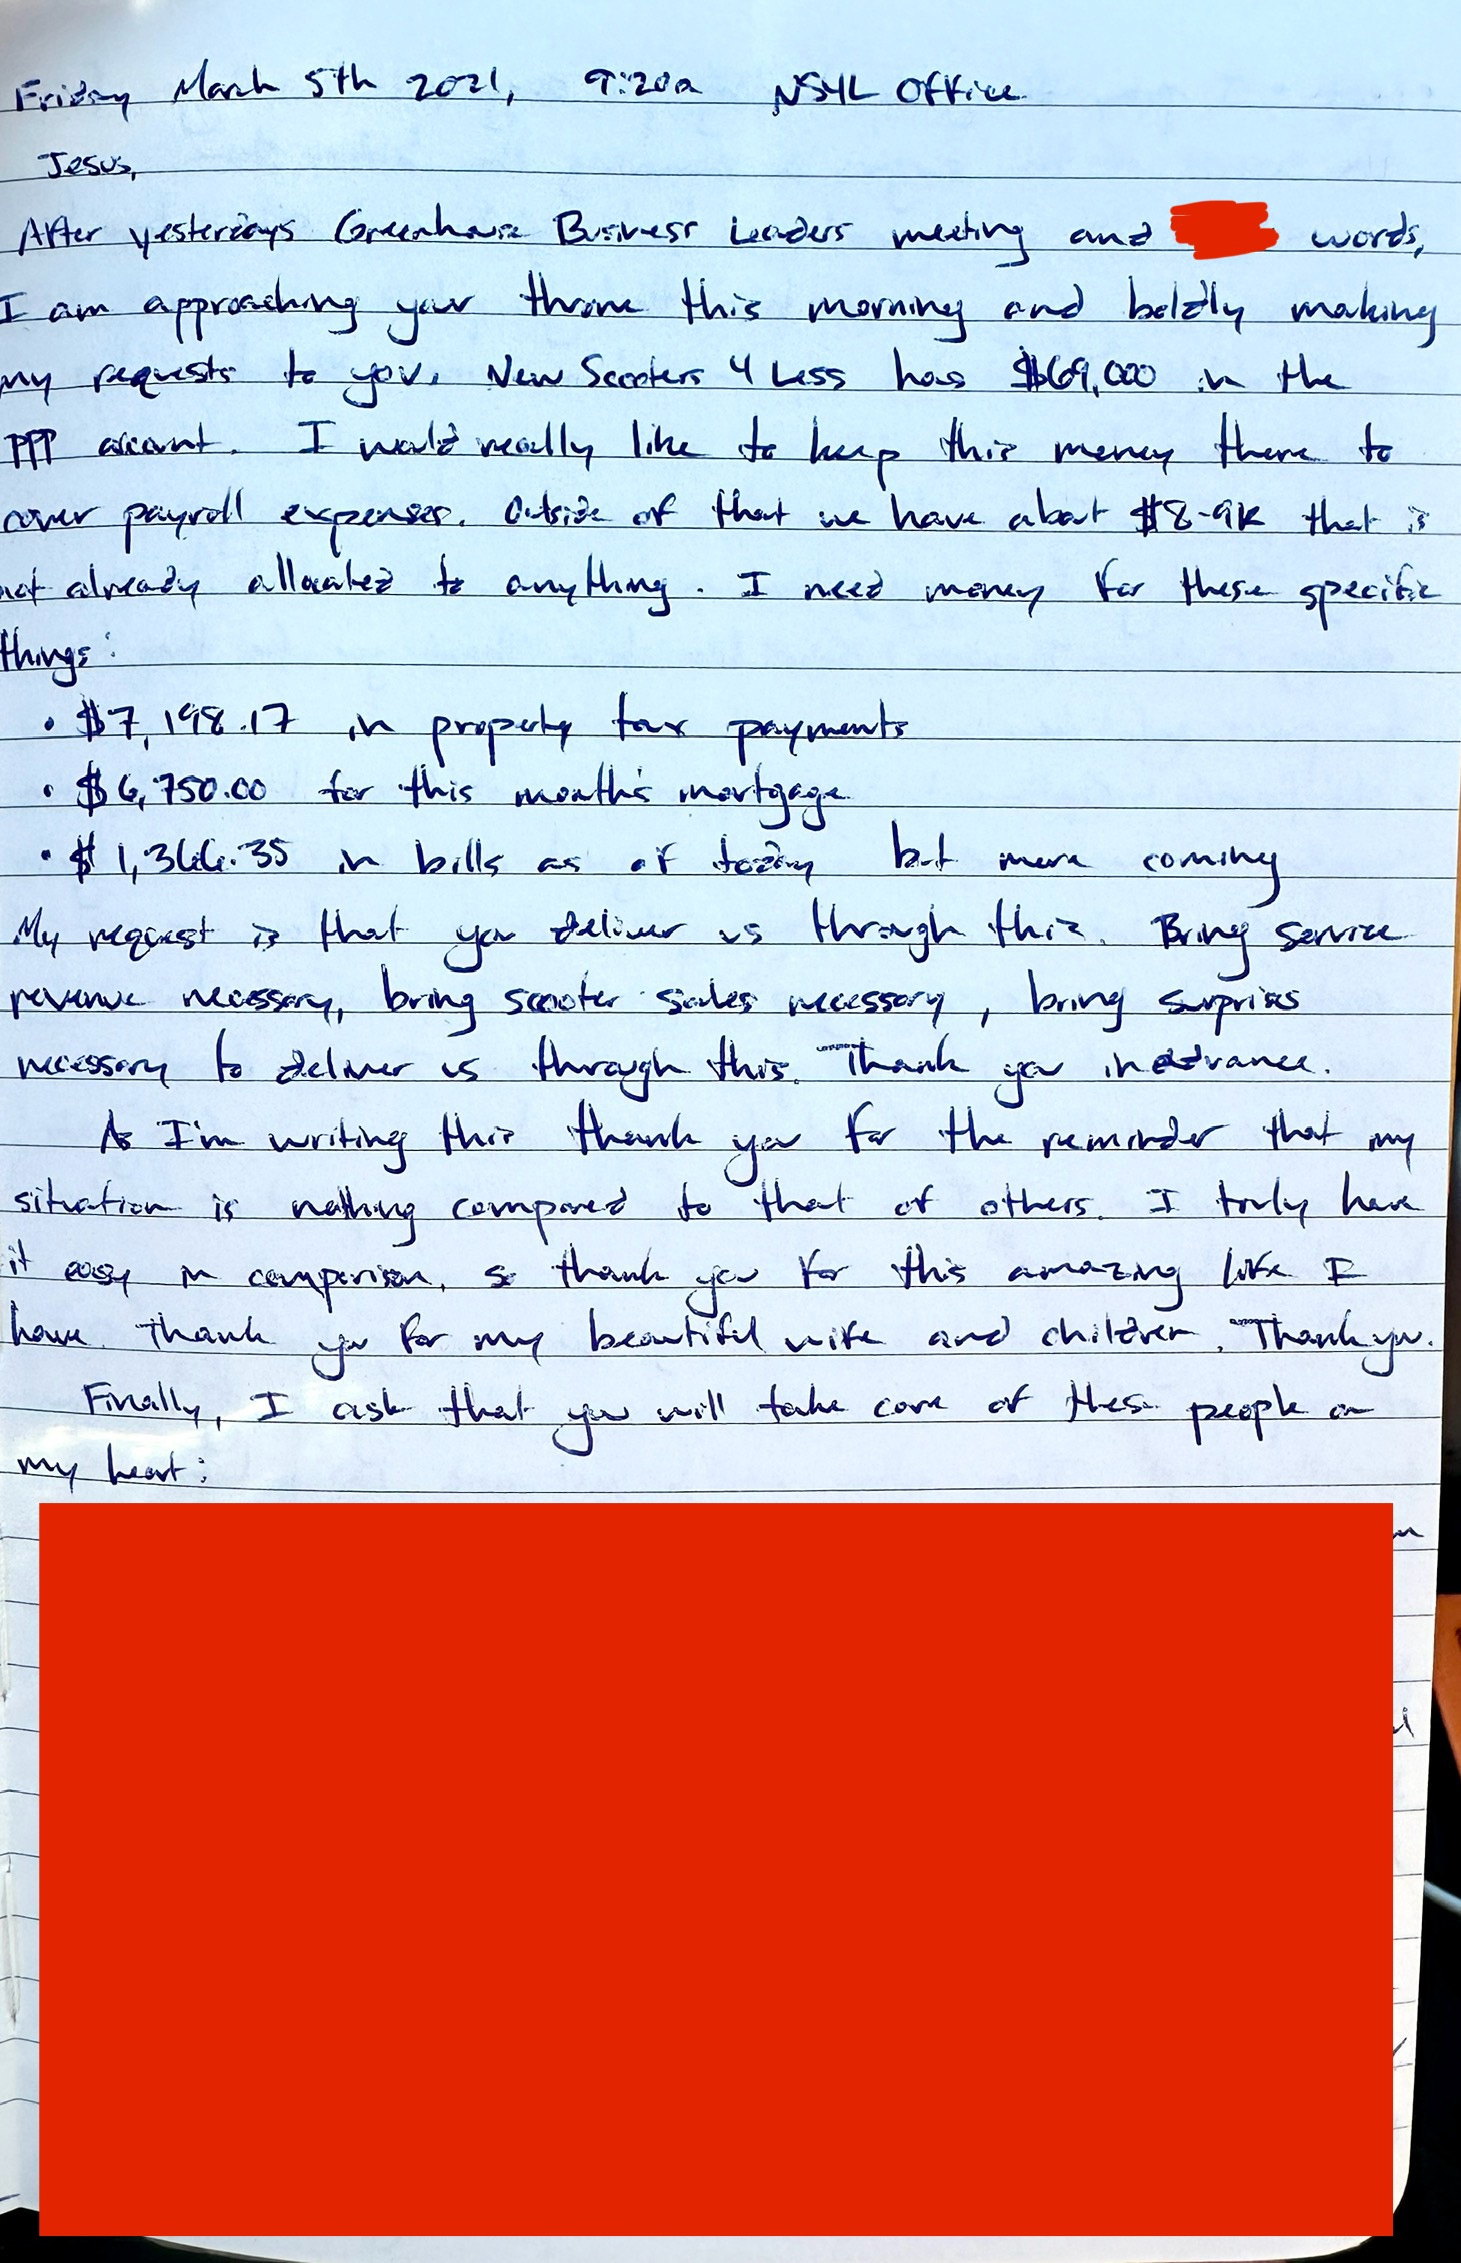 Friday March 5th 2021, 9:20a NS4L Office
Jesus,
After yesterdays Greenhouse Business Leaders meeting and words,
I am approaching your throne this morning and boldly making
my requests to you. New Scooters 4 Less has $69,000 in the
PPP account. I would really like to keep this money there to
cover payroll expenses. Outside of that we have about $8-9K that is
not already allocated to anything. I need money for these specific
things:
• $7,198.17 in property tax payments
• $6,750.00 for this month's mortgage
• $1,366.35 in bills as of today but more coming
My request is that you deliver us through this. Bring service
revenue necessary, bring scooter sales necessary, bring surprises
necessary to deliver us through this. Thank you in advance.
As I'm writing this thank you for the reminder that my
situation is nothing compared to that of others. I truly have
it easy in comparison, so thank you for this amazing life I
have. Thank you for my beautiful wife and children. Thank you.
Finally, I ask that you will take care of these people on
my heart: